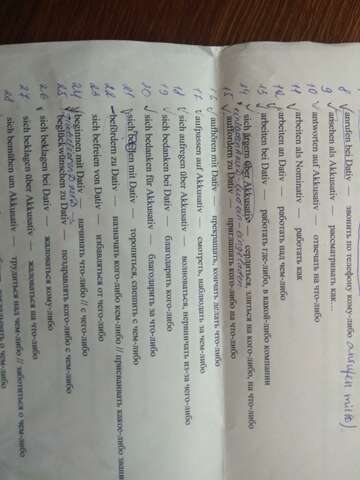 8 anrufen bei Dativ — звонить по телефону кому-либо anrufen mit(b).
9 ansehen als Akkusativ — рассматривать как...
10 antworten auf Akkusativ — отвечать на что-либо
11 arbeiten als Nominativ — работать как
12 arbeiten an Dativ — работать над чем-либо
13 arbeiten bei Dativ — работать где-либо, в какой-либо компании
14 sich ärgern über Akkusativ — сердиться, злиться на кого-либо, на что-либо
15 auffordern zu Dativ — приглашать кого-либо на что-либо
16 aufhören mit Dativ — прекращать, кончать делать что-либо
17 aufpassen auf Akkusativ — смотреть, наблюдать за чем-либо
18 sich aufregen über Akkusativ — волноваться, нервничать из-за чего-либо
19 sich bedanken bei Dativ — благодарить кого-либо
20 sich bedanken für Akkusativ — благодарить за что-либо
21 sich beeilen mit Dativ — торопиться, спешить с чем-либо
22 befördern zu Dativ — назначать кого-либо кем-либо // присваивать какое-либо звани
23 sich befreien von Dativ — избавляться от чего-либо
24 beginnen mit Dativ — начинать что-либо // с чего-либо
25 beglückwünschen zu Dativ — поздравлять кого-либо с чем-либо
26 sich beklagen bei Dativ — жаловаться кому-либо
27 sich beklagen über Akkusativ — жаловаться на что-либо
28 sich bemühen um Akkusativ — трудиться над чем-либо // заботиться о чем-либо